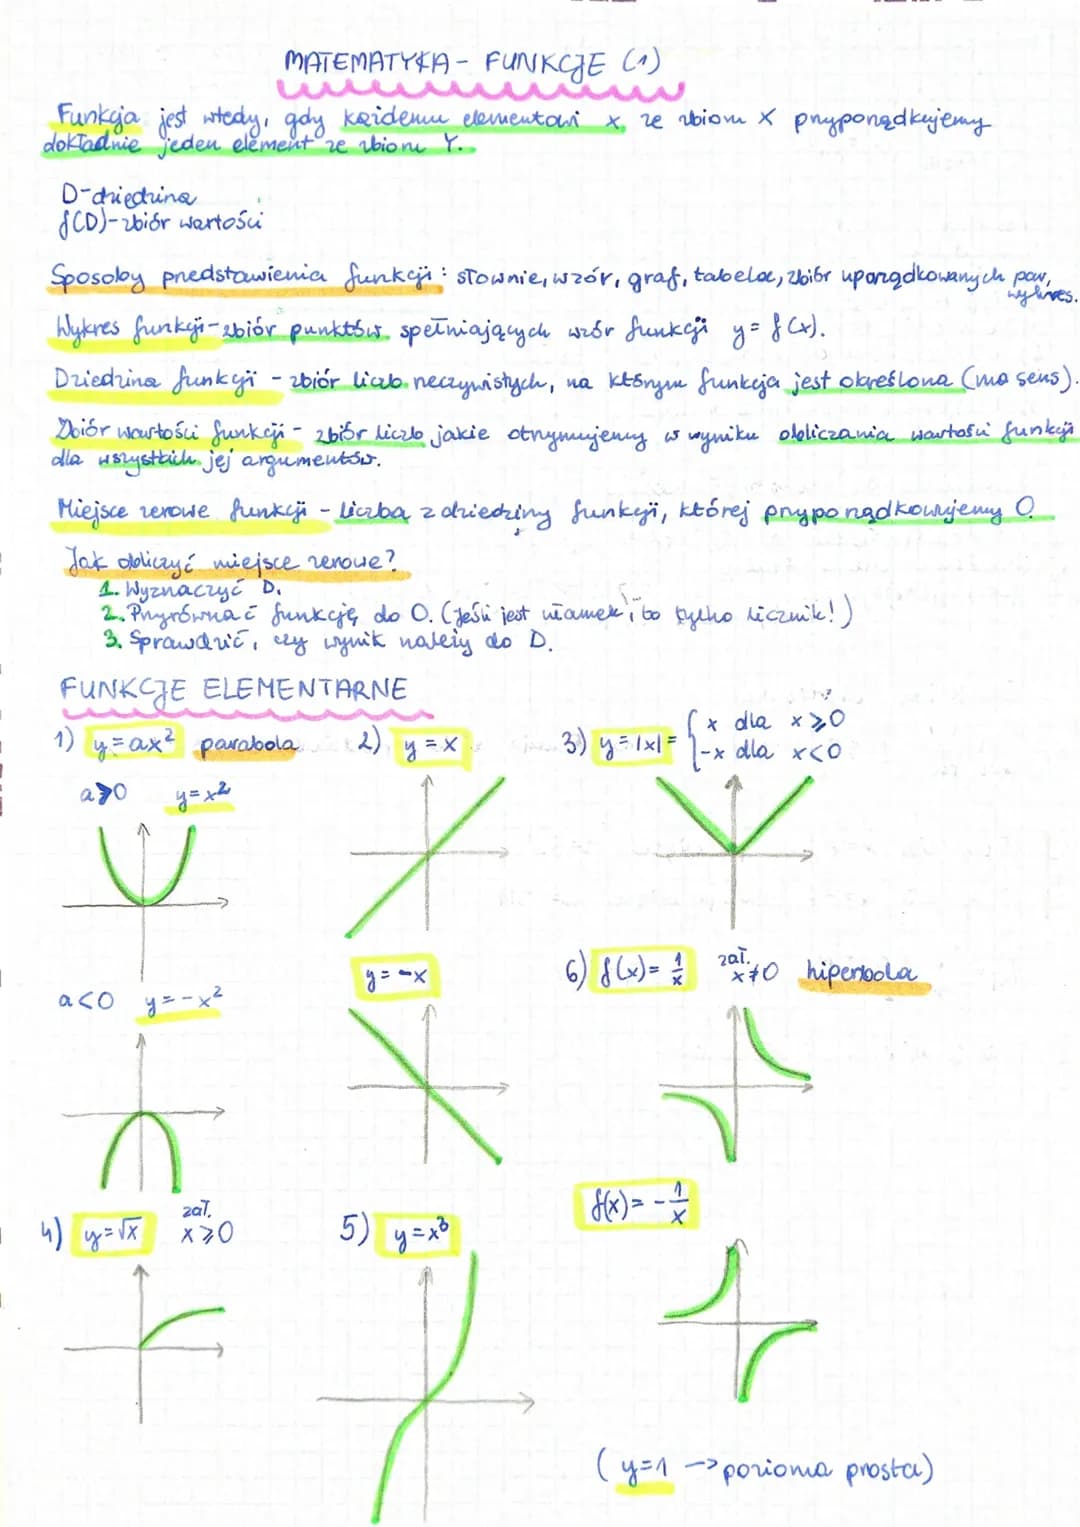 MATEMATYKA - FUNKCJE (1)
Funkcja jest wtedy, gdy każdemu elementowi x ze zbioru X przyporządkujemy
dokładnie jeden element ze zbioru Y.
D-dziedzina
f(D)-zbiór wartości
Sposoby przedstawienia funkcji: słownie, wzór, graf, tabela, zbiór uporządkowanych par,
wykres.
Wykres funkcji-zbiór punktów spełniających wzór funkcji y = f(x).
Dziedzina funkcji - zbiór liczb rzeczywistych, na którym funkcja jest określona (ma sens).
Zbiór wartości funkcji - zbiór liczb jakie otrzymujemy w wyniku obliczania wartości funkcji
dla wszystkich jej argumentów.
Miejsce zerowe funkcji - liczba z dziedziny funkcji, której przyporządkowujemy 0.
Jak obliczyć miejsce zerowe?
1. Wyznaczyć D.
2. Przyrównać funkcję do 0. (Jeśli jest ułamek, to tylko licznik!)
3. Sprawdzić, czy wynik należy do D.
FUNKCJE ELEMENTARNE
1) y=ax² parabola 2) y=x 3) y=|x|= { x dla x⩾0
-x dla x<0
a>0 y=x²
a<0 y=-x²
y=-x
6) f(x)= 1/x zał. x≠0 hiperbola
4) y=√x zał. x⩾0
5) y=x³
f(x)= - 1/x
(y=1 -> pozioma prosta)